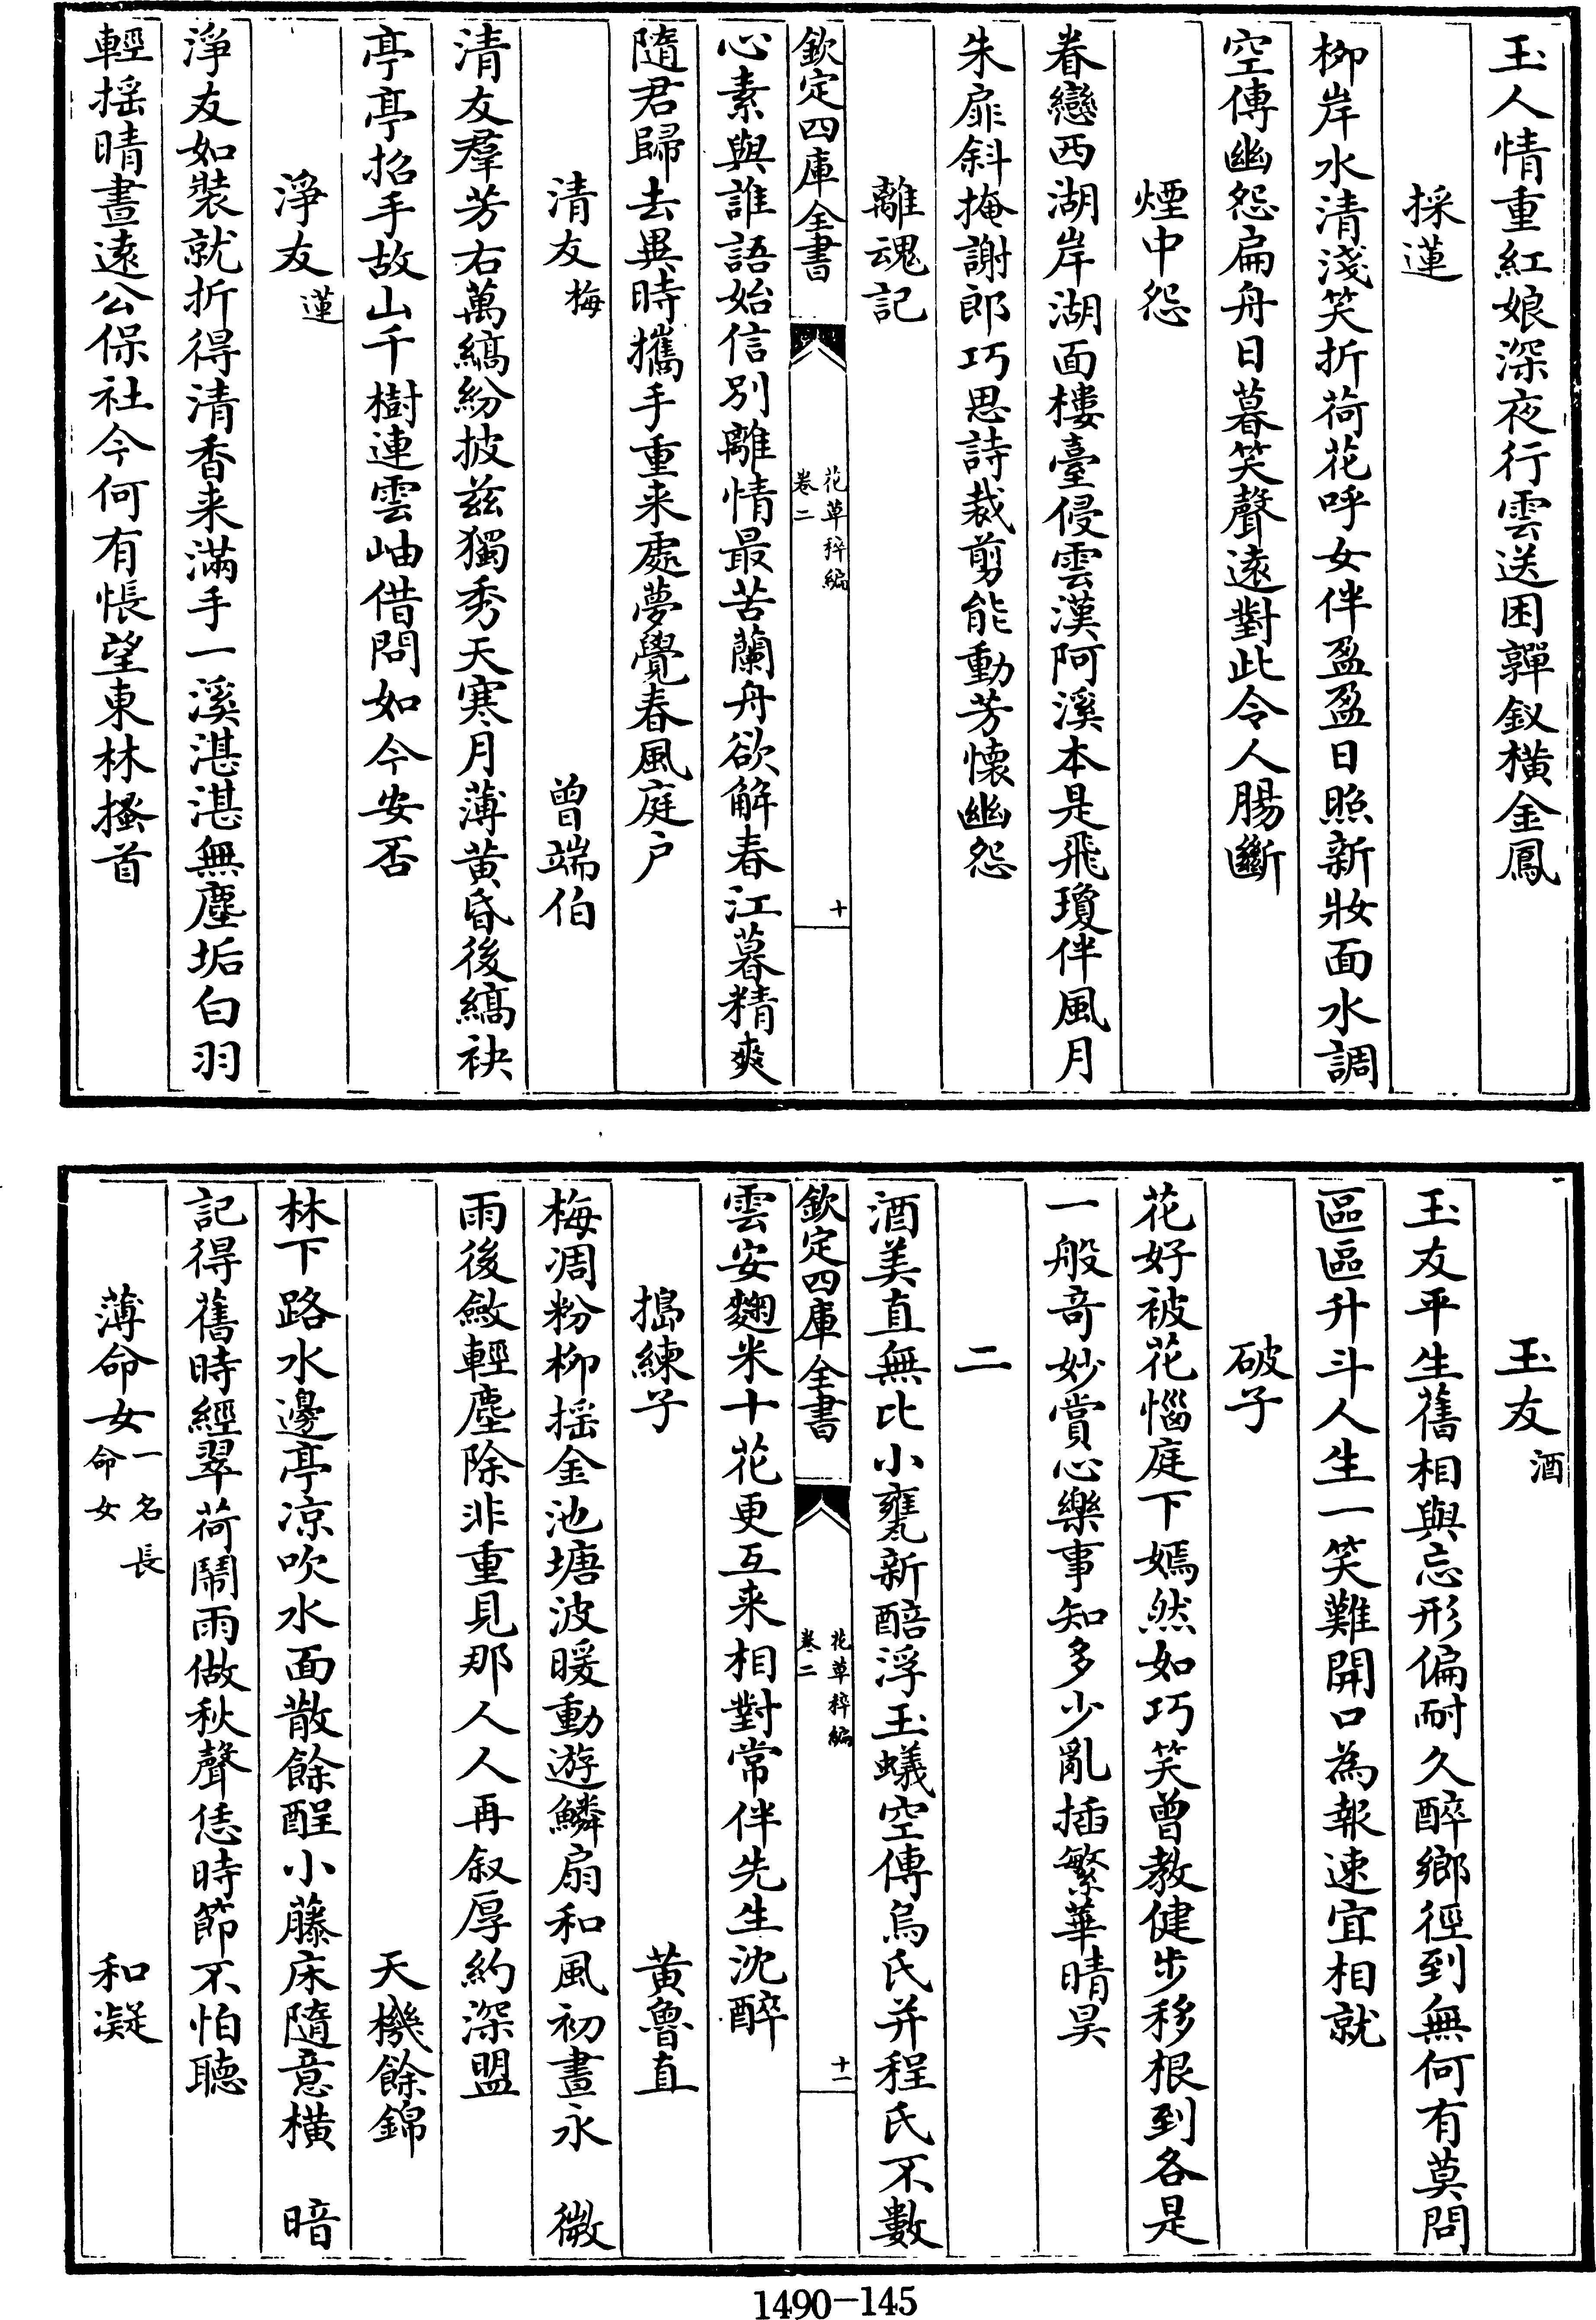 玉人情重紅娘深夜行雲送困嚲釵橫金鳳
採蓮
柳岸水清淺笑折荷花呼女伴盈盈日照新妝面水調
空傳幽怨扁舟日暮笑聲遠對此令人腸斷
煙中怨
眷戀西湖岸湖面樓臺侵雲漢阿溪本是飛瓊伴風月
朱扉斜掩謝郎巧思詩裁剪能動芳懷幽怨
離魂記
欽定四庫全書
花草稡編
卷二
十
心素與誰語始信別離情最苦蘭舟欲解春江暮精爽
隨君歸去異時攜手重来處夢覺春風庭户
清友梅 曾端伯
清友羣芳右萬縞紛披兹獨秀天寒月薄黄昏後縞袂
亭亭招手故山千樹連雲岫借問如今安否
淨友蓮
淨友如裝就折得清香来滿手一溪湛湛無塵垢白羽
輕揺晴晝遠公保社今何有悵望東林搔首
玉友酒
玉友平生舊相與忘形偏耐久醉鄉徑到無何有莫問
區區升斗人生一笑難開口為報速宜相就
破子
花好被花惱庭下嫣然如巧笑曾教健步移根到各是
一般竒妙賞心樂事知多少亂插繁華晴昊
二
酒美直無比小甕新醅浮玉蟻空傳烏氏并程氏不數
欽定四庫全書
花草稡編
卷二
十一
雲安麴米十花更互来相對常伴先生沈醉
搗練子 黄魯直
梅凋粉柳揺金池塘波暖動遊鱗扇和風初晝永 微
雨後斂輕塵除非重見那人人再叙厚約深盟
天機餘錦
林下路水邊亭凉吹水面散餘酲小藤床隨意横 暗
記得舊時經翠荷鬧雨做秋聲恁時節不怕聴
薄命女一名長命女 和凝
1490-145